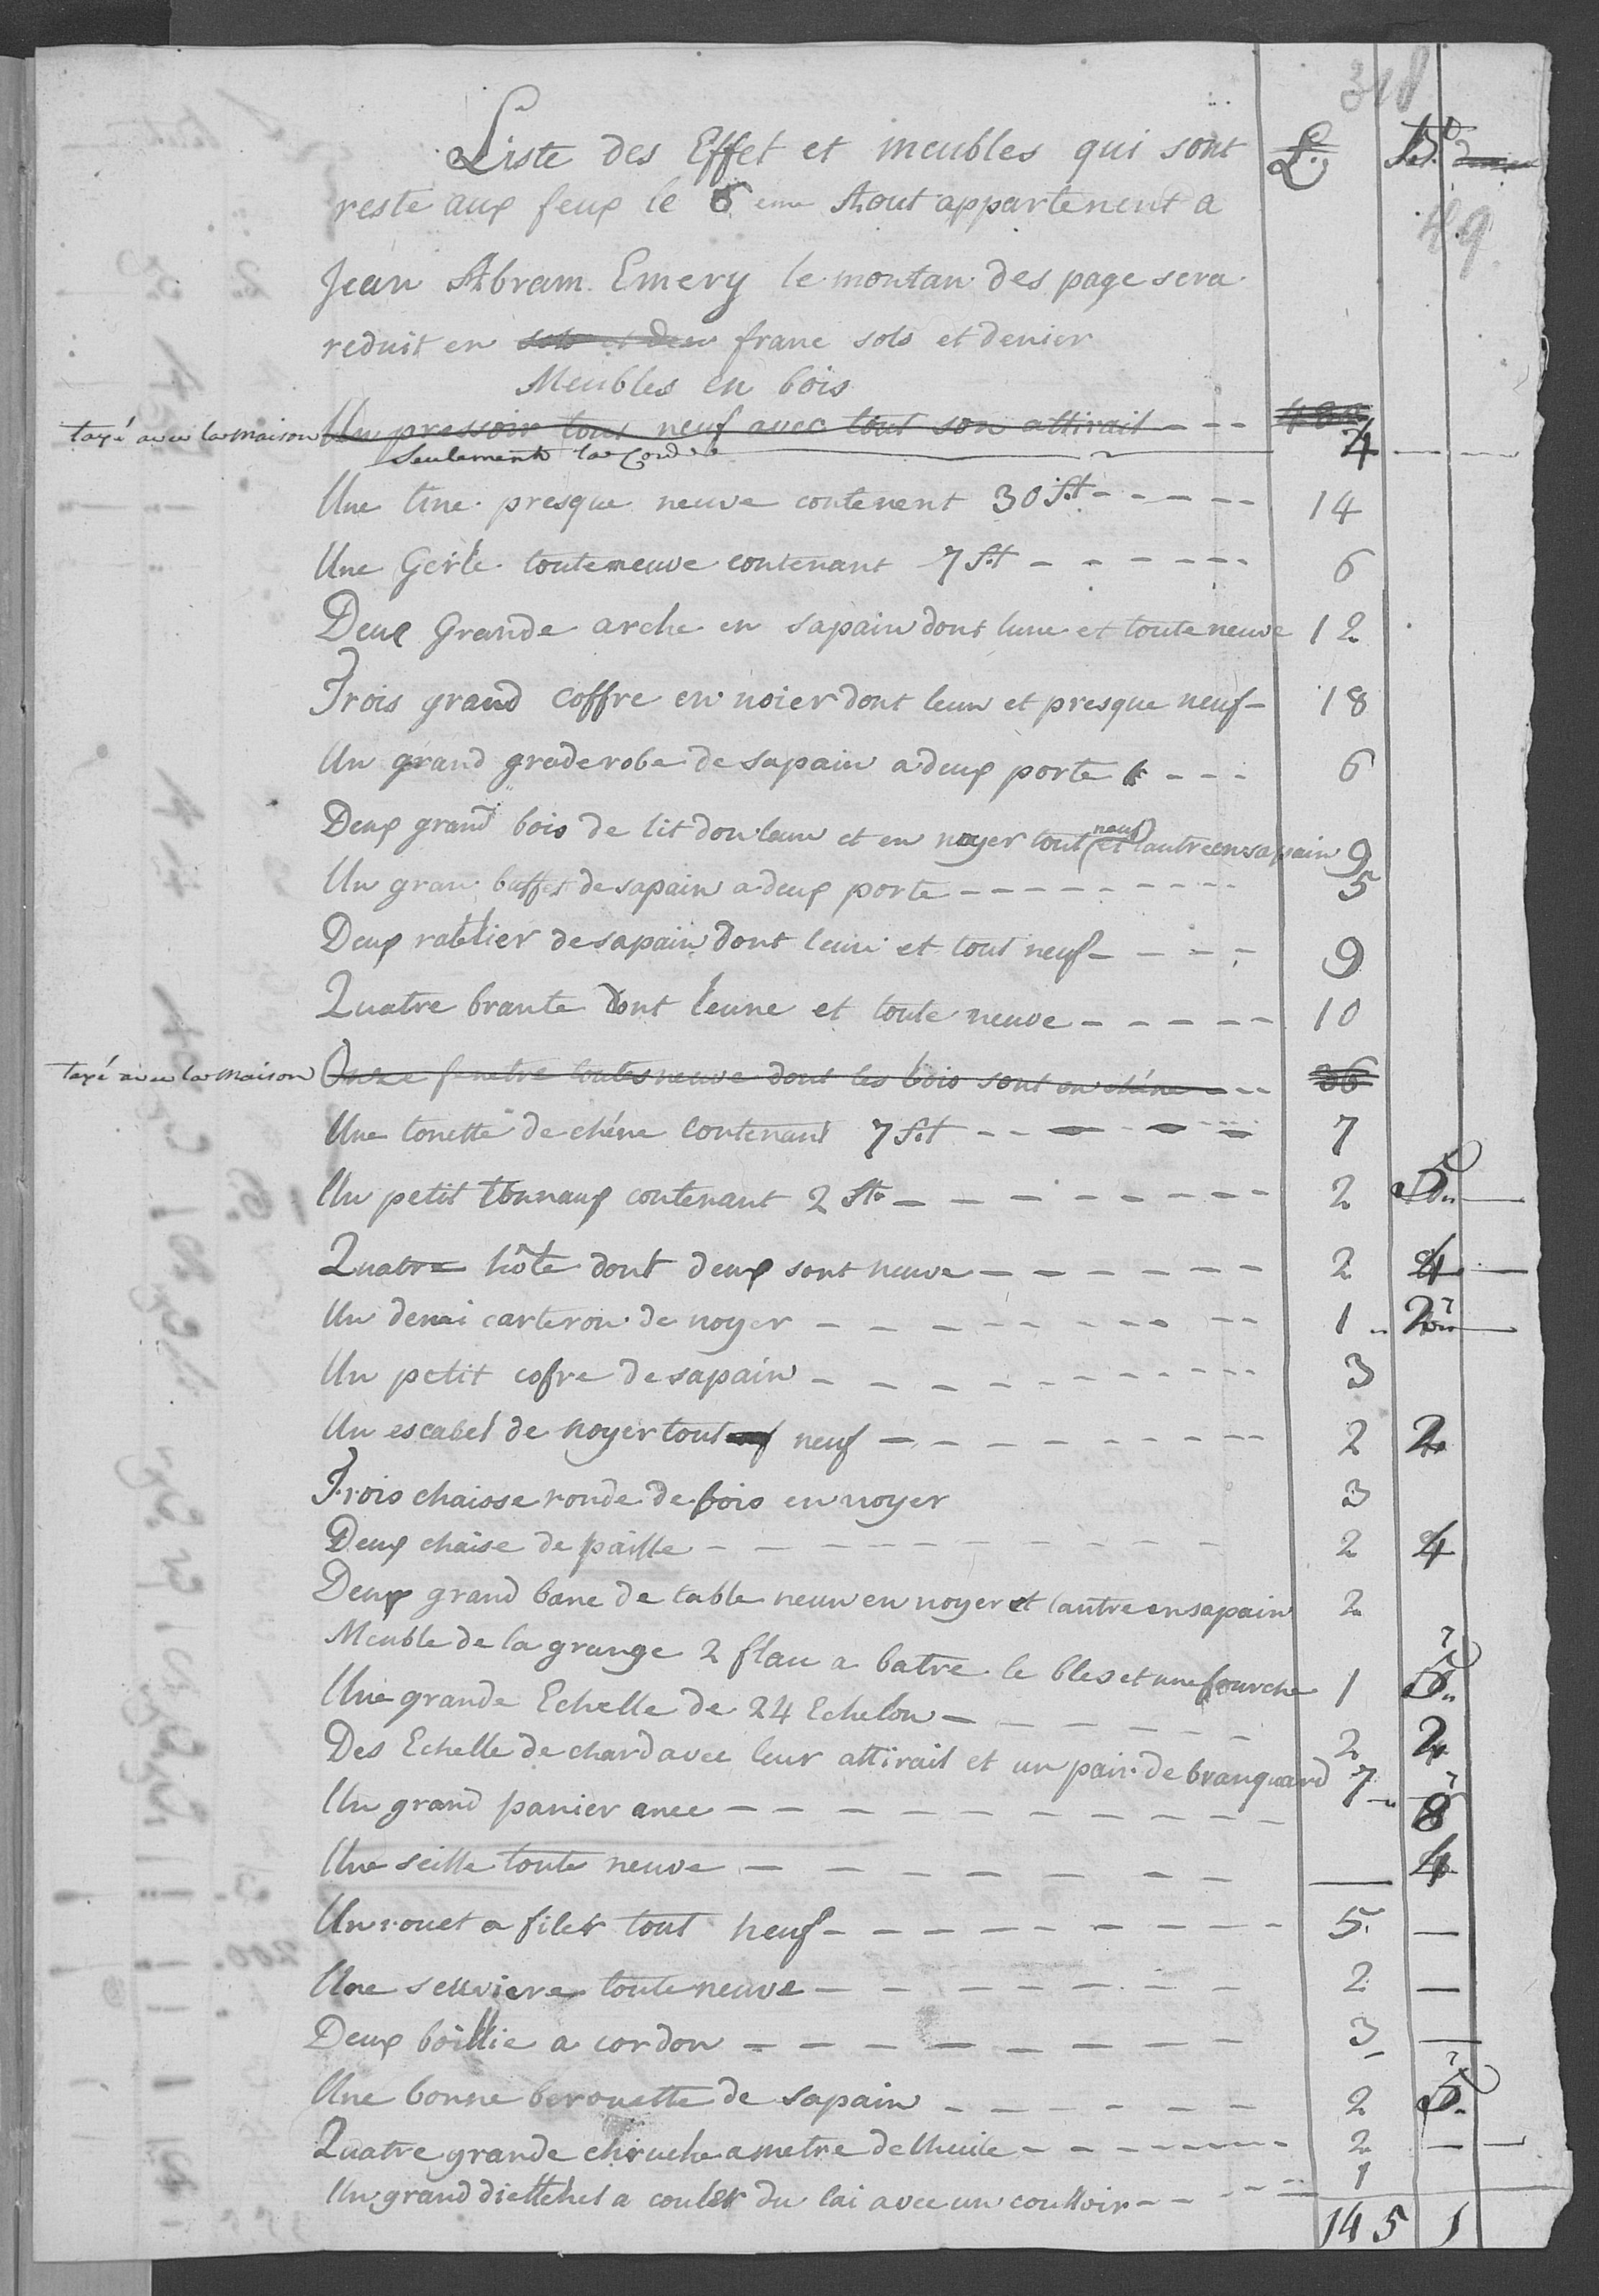 318
Liste des Effet et meubles qui sont £.
reste aux feux le 6 eme Aout appartenent a
49
Jean Abram Emery le montan des page sera
reduit en sols et den franc sols et denier
Meubles en bois
taxé avec la maison Un pressoir tout neuf avec tout son attirail
seulement la Corde 4
Une tine presque neuve contenent 30 St 14
Une Gerle touteneuve contenant 7 St 6
Deux Grande arche en sapain dont lune et toute neuve 12
Trois grand coffre en noier dont leun et presque neuf 18
Un grand graderobe de sapain a deux porte 6
Deux grand bois de lit don leun et en noyer tout neuf et lautre en sapain 9
Un gran buffet de sapain a deux porte 5
Deux ratelier de sapain dont leun et tout neuf 9
Quatre brante dont leune et toute neuve 10
taxé avec la maison Onze fenetre toutes neuve dont les bois sont en chéne 36
Une tonette de chéne contenant 7 St 7
Un petit tonnaux contenant 2 St 2 5
Quatre hôte dont deux sont neuve 2 4
Un demi carteron de noyer 1 2
Un petit cofre de sapain 3
Un escabel de noyer tout neuf 2 2
Trois chaisse ronde de bois en noyer 3
Deux chaise de paille 2 4
Deux grand banc de table neun en noyer et lautre en sapain 2
Meuble de la grange 2 flau a batre le bles et une fourche 1 5
Une grande Echelle de 24 Echelon 2 2
Des Echelle de chard avec leur attirail et un pair de branquard 7
Un grand panier ance 8
Une seille toute neuve 4
Un rouet a filer tout neuf 5
Une toute neuve 2
Deux boillie a cordon 3
Une bonne berouette de sapain 2 5
Quatre grande chruche a metre de lhuile 2
Un grand diettchet a couler du lai avec un coulloir 1
145 1